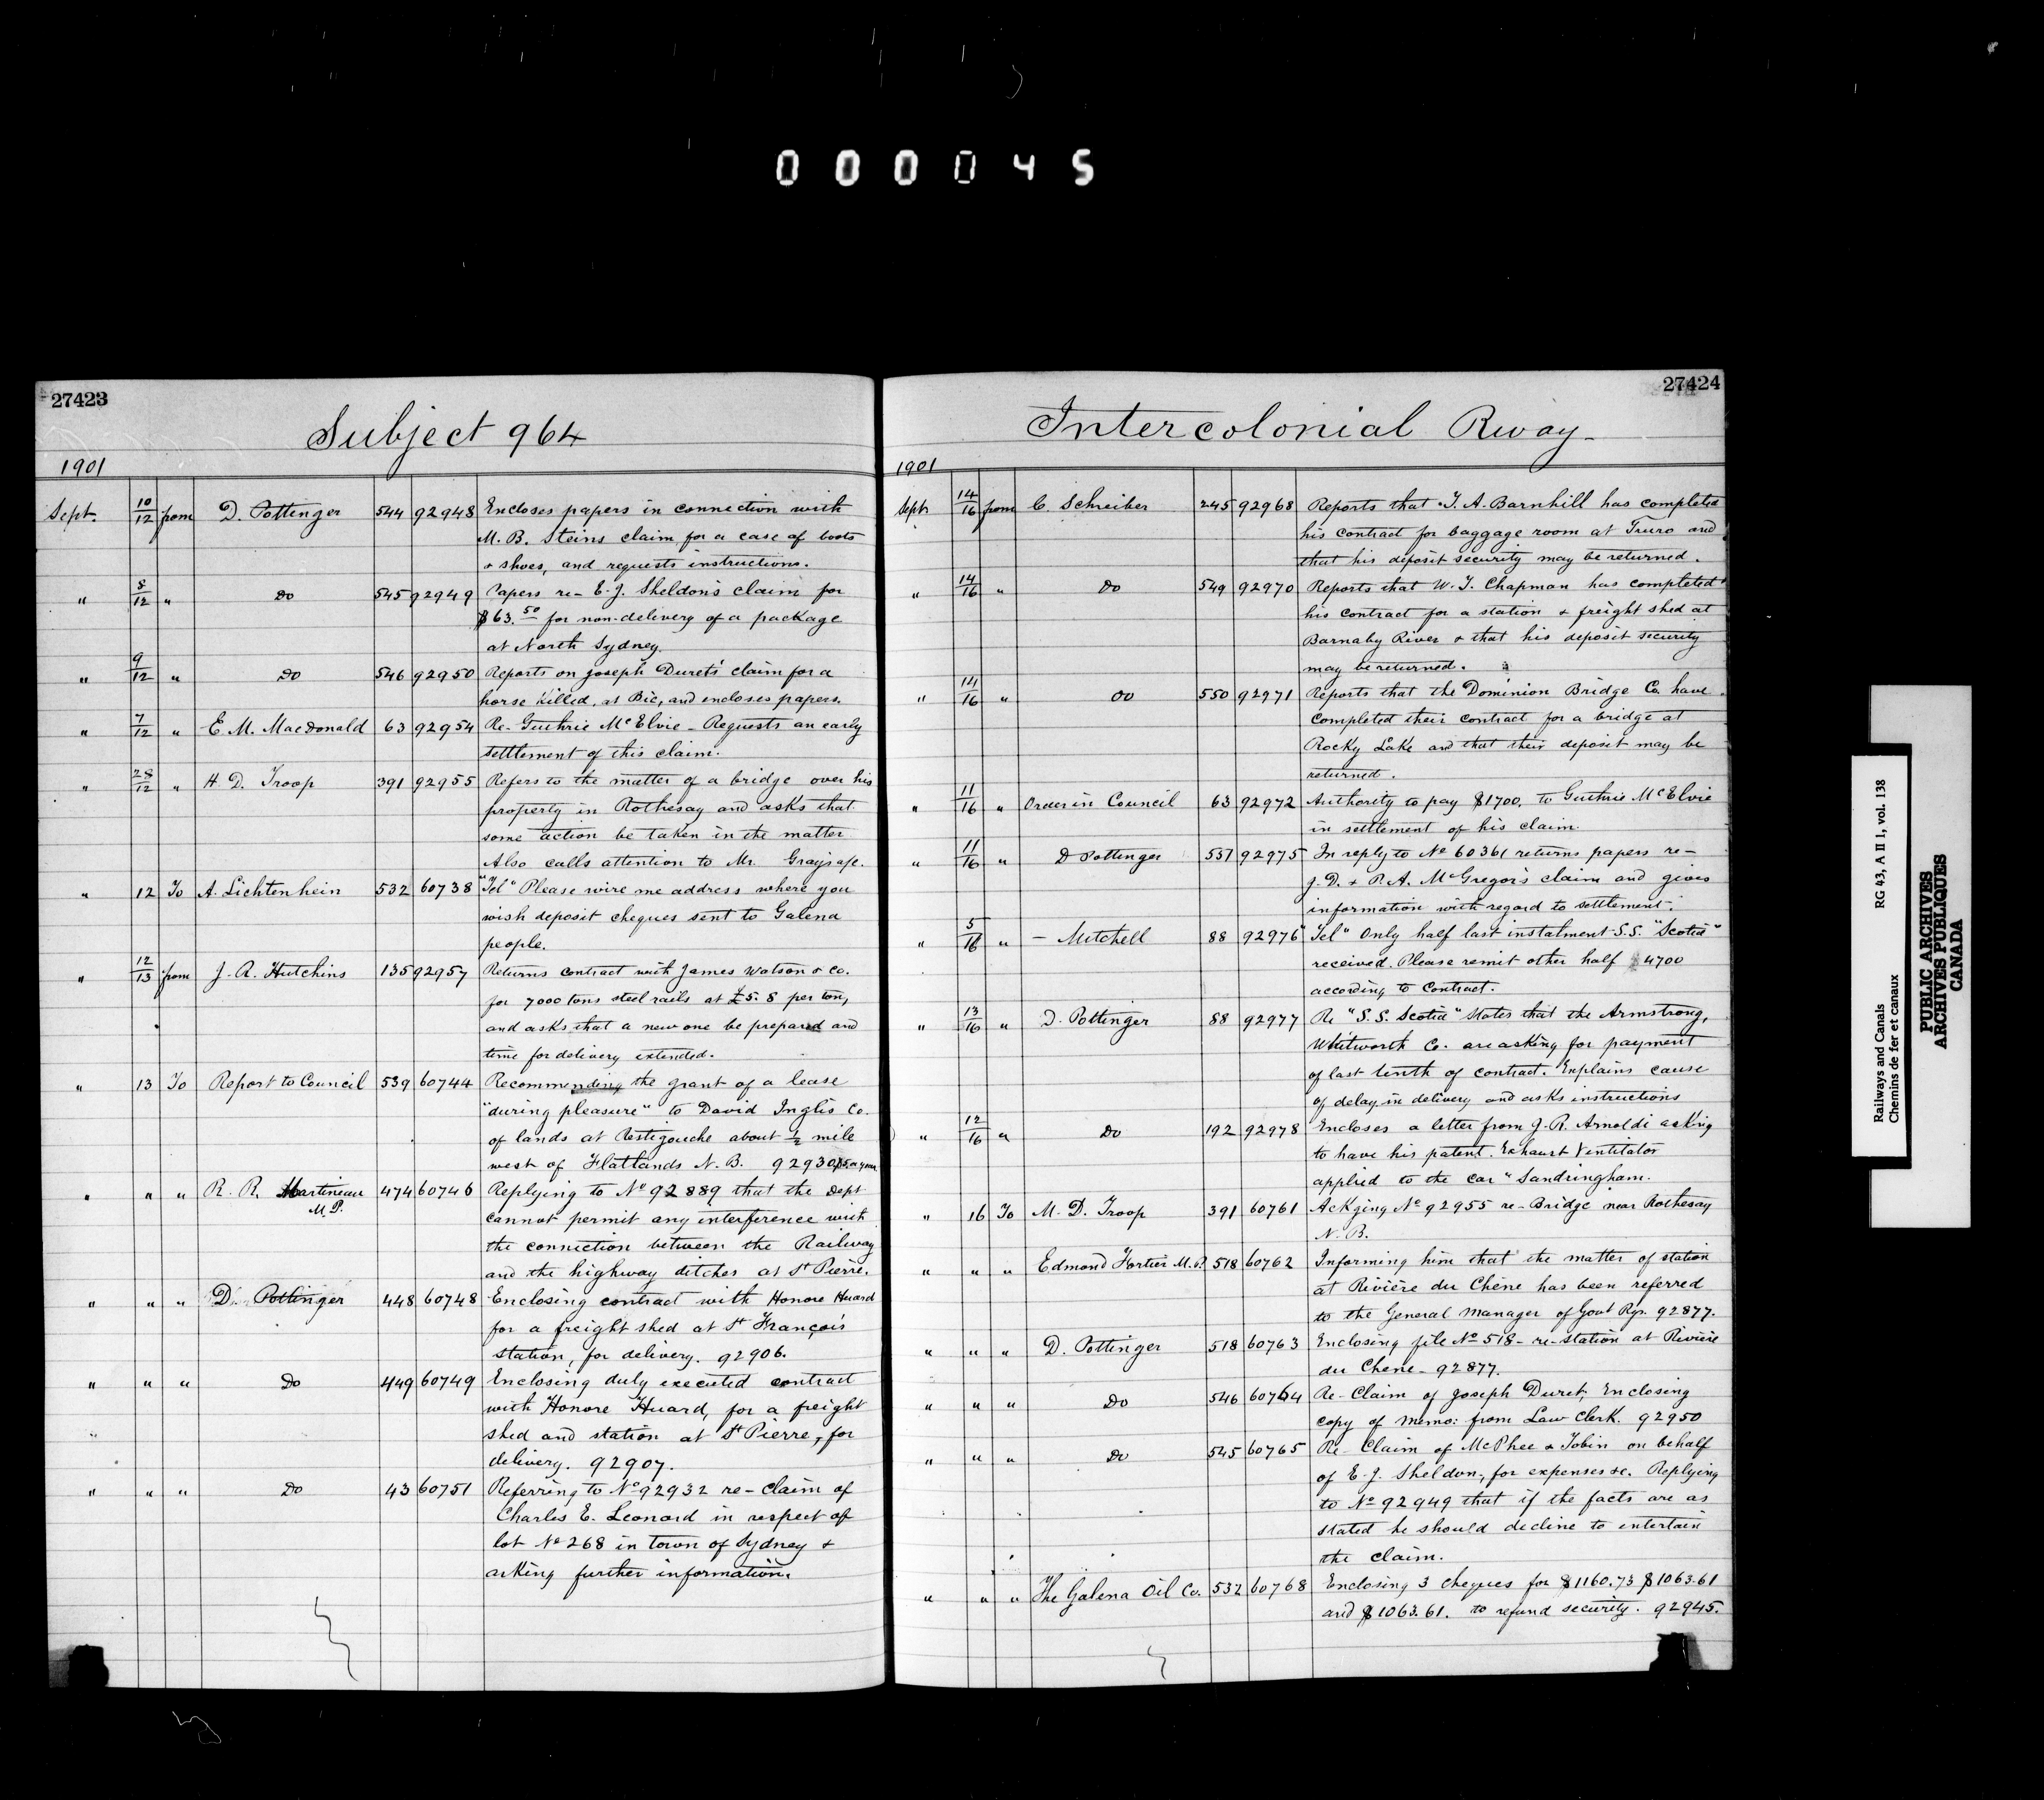 000045
27423
Subject 964
1901
Sept. 10/12 from D. Pottinger 544 92948 Encloses papers in connection with
M. B. Steins claim for a case of boots
& shoes, and requests instructions.
" 8/12 " Do 545 92949 Papers re- E. J. Sheldon's claim for
$63.50 for non-delivery of a package
at North Sydney.
" 9/12 " Do 546 92950 Reports on Joseph Duret's claim for a
horse killed, at Bic, and encloses papers.
" 7/12 " E. M. MacDonald 63 92954 Re- Guthrie McElvie - Requests an early
settlement of this claim.
" 28/12 " H. D. Troop 391 92955 Refers to the matter of a bridge over his
property in Rothesay and asks that
some action be taken in the matter
Also calls attention to Mr.
" 12 To A. Lichtenhein 532 60738 "Tel" Please wire me address where you
wish deposit cheques sent to Galena
people.
" 12/13 from J. A. Hutchins 135 92957 Returns contract with James Watson & Co.
for 7000 tons steel rails at £5.8 per ton,
and asks that a new one be prepared and
time for delivery extended.
" 13 To Report to Council 539 60744 Recommending the grant of a lease
"during pleasure" to David Inglis Co.
of lands at Restigouche about 1/2 mile
west of Flatlands N.B. 92930 $5. a year
" " " R. R. Martineau 474 60746 Replying to No 92889 that the Dept
M.P.
cannot permit any interference with
the connection between the Railway
and the highway ditches at St Pierre.
" " " D. Pottinger 448 60748 Enclosing contract with Honore Huard
for a freight shed at St François
station, for delivery. 92906.
" " " Do 449 60749 Enclosing duly executed contract
with Honore Huard, for a freight
shed and station at St Pierre, for
delivery. 92907.
" " " Do 43 60751 Referring to No 92932 re- claim of
Charles E. Leonard in respect of
lot No 268 in town of Sydney &
asking further information.
27424
Intercolonial Rway-
1901
Sept. 14/16 from C. Schreiber 245 92968 Reports that T. A. Barnhill has completed
his contract for baggage room at Truro and
that his deposit security may be returned.
" 14/16 " Do 549 92970 Reports that W. T. Chapman has completed
his contract for a station & freight shed at
Barnaby River & that his deposit security
may be returned.
" 14/16 " Do 550 92971 Reports that the Dominion Bridge Co. have
completed their contract for a bridge at
Rocky Lake and that their deposit may be
returned.
" 11/16 " Order in Council 63 92972 Authority to pay $1700. to Guthrie McElvie
in settlement of his claim.
" 11/16 " D Pottinger 531 92975 In reply to No 60361 returns papers re-
J. D. & P. A. McGregor's claim and gives
information with regard to settlement.
" 5/16 " - Mitchell 88 92976 "Tel" Only half last instalment S.S. "Scotia"
received. Please remit other half $4700
according to Contract.
" 13/16 " D. Pottinger 88 92977 Re "S.S. Scotia" States that the Armstrong,
Whitworth Co. are asking for payment
of last tenth of contract. Explains cause
of delay in delivery and asks instructions
" 12/16 " Do 192 92978 Encloses a letter from J. R. Arnoldi asking
to have his patent. Exhaust Ventilator
applied to the car "Sandringham.
" 16 To M. D. Troop 391 60761 Ackging No 92955 re- Bridge near Rothesay
N.B.
" " " Edmond Fortier M.P. 518 60762 Informing him that the matter of station
at Rivière du Chêne has been referred
to the General Manager of Govt Rys. 92877.
" " " D. Pottinger 518 60763 Enclosing file No 518- re- station at Rivière
du Chene- 92877.
" " " Do 546 60764 Re- Claim of Joseph Duret, Enclosing
copy of memo: from Law Clerk. 92950
" " " Do 545 60765 Re- Claim of McPhee & Tobin on behalf
of E. J. Sheldon, for expenses &c. Replying
to No 92949 that if the facts are as
stated he should decline to entertain
the claim.
" " " The Galena Oil Co. 532 60768 Enclosing 3 cheques for $1160.73 $1063.61
and $1063.61. to refund security. 92945.
Railways and Canals RG 43, A II 1, vol. 138
Chemins de fer et canaux
PUBLIC ARCHIVES
ARCHIVES PUBLIQUES
CANADA